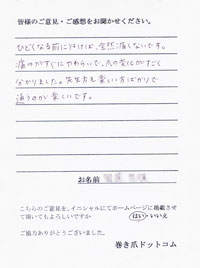 皆様のご意見・ご感想をお聞かせください。
ひどくなる前に行けば、全然痛くないです。
痛みがすぐにやわらいで、爪の変化がすごく
分かりました。先生方も楽しい方ばかりで
通うのが楽しいです。
お名前
こちらのご意見を、イニシャルにてホームページに掲載させ
て頂いてもよろしいですか
はい・いいえ
ご協力ありがとうございました。
巻き爪ドットコム